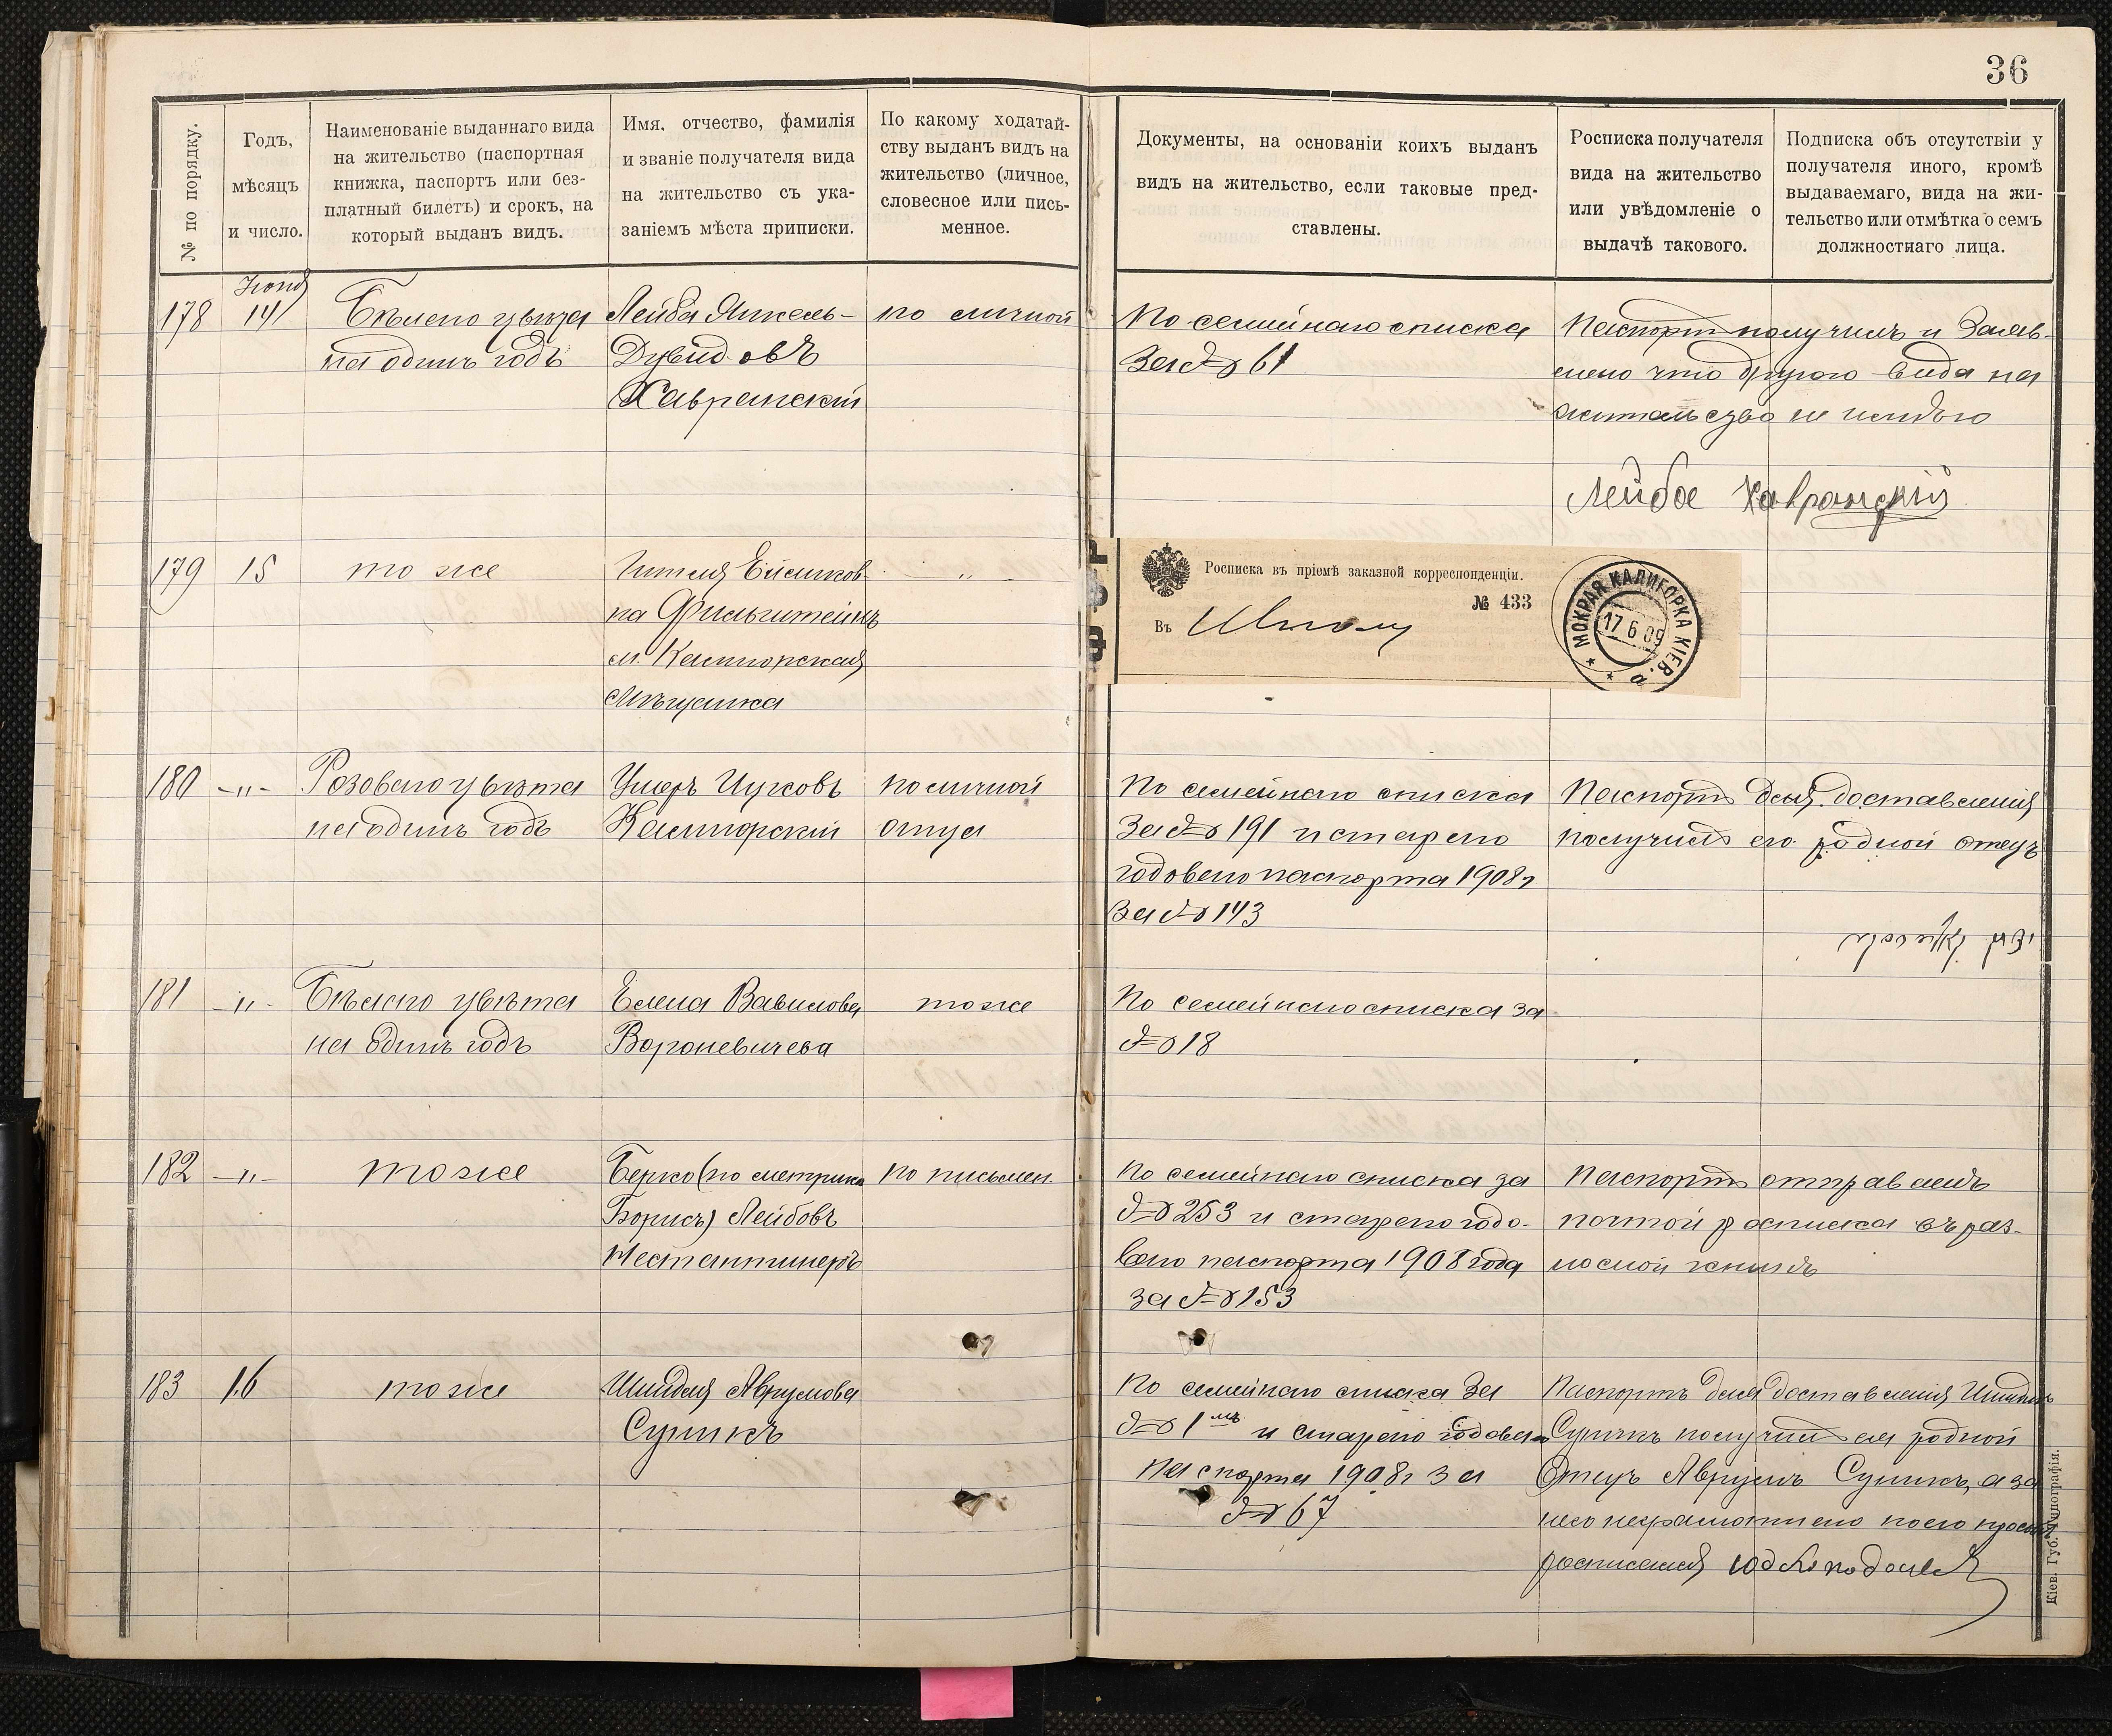 36
№ по порядку.
Годъ,
мѣсяцъ
и число.
Наименованіе выданнаго вида
на жительство (паспортная
книжка, паспортъ или без-
платный билетъ) и срокъ, на
который выданъ видъ.
Имя, отчество, фамилія
и званіе получателя вида
на жительство съ ука-
заніемъ мѣста приписки.
По какому ходатай-
ству выданъ видъ на
жительство (личное,
словесное или пись-
менное.
Документы, на основаніи коихъ выданъ
видъ на жительство, если таковые пред-
ставлены.
Росписка получателя
вида на жительство
или увѣдомленіе о
выдачѣ такового.
Подписка объ отсутствіи у
получателя иного, кромѣ
выдаваемаго, вида на жи-
тельство или отмѣтка о семъ
должностнаго лица.
Іюня
178 14
Бѣлаго цвѣта
на одинъ годъ
Лейба Янкель-
Дувидовъ
Хавранскій
по личной
По семейнаго списка
За № 61
Паспортъ получилъ и Заяв-
ляю что другого вида на
жительство не имѣю
Лейба Хавранскій
179 15
то же
на Фильштейнъ
м. Калигорская
Мѣщанка
"
Росписка въ пріемѣ заказной корреспонденціи.
№ 433
Въ Шполу
МОКРАЯ КАЛИГОРКА КІЕВ.
17 6 09
а
180 -"-
Розоваго цвѣта
на одинъ годъ
Ушеръ Ицковъ
Калигорскій
по личной
отца
По семейнаго списка
За № 191 и стараго
годоваго паспорта 1908 г
За № 143
Паспортъ для доставленія
получилъ его родной отецъ
181 -"-
Бѣлаго цвѣта
на одинъ годъ
Елена Вавилова
Вороневичева
то же
По семейнаго списка за
№ 18
182 -"-
то же
Берко (по метрика
Борисъ) Лейбовъ
по письмен.
По семейнаго списка за
№ 253 и стараго годо-
ваго паспорта 1908 года
за № 153
Паспортъ отправленъ
почтой росписка въ раз-
носной книгѣ
183 16
то же
Шиндля Аврумова
Сушикъ
По семейнаго списка За
№ 1мъ и стараго годоваго
паспорта 1908 г За
№ 67
Паспортъ для доставленія Шиндлѣ
Сушикъ получилъ ея родной
Отецъ Аврумъ Сушикъ, а за
него неграмотнаго по его просьбѣ
росписался
Кіев. Губ. Типографія.